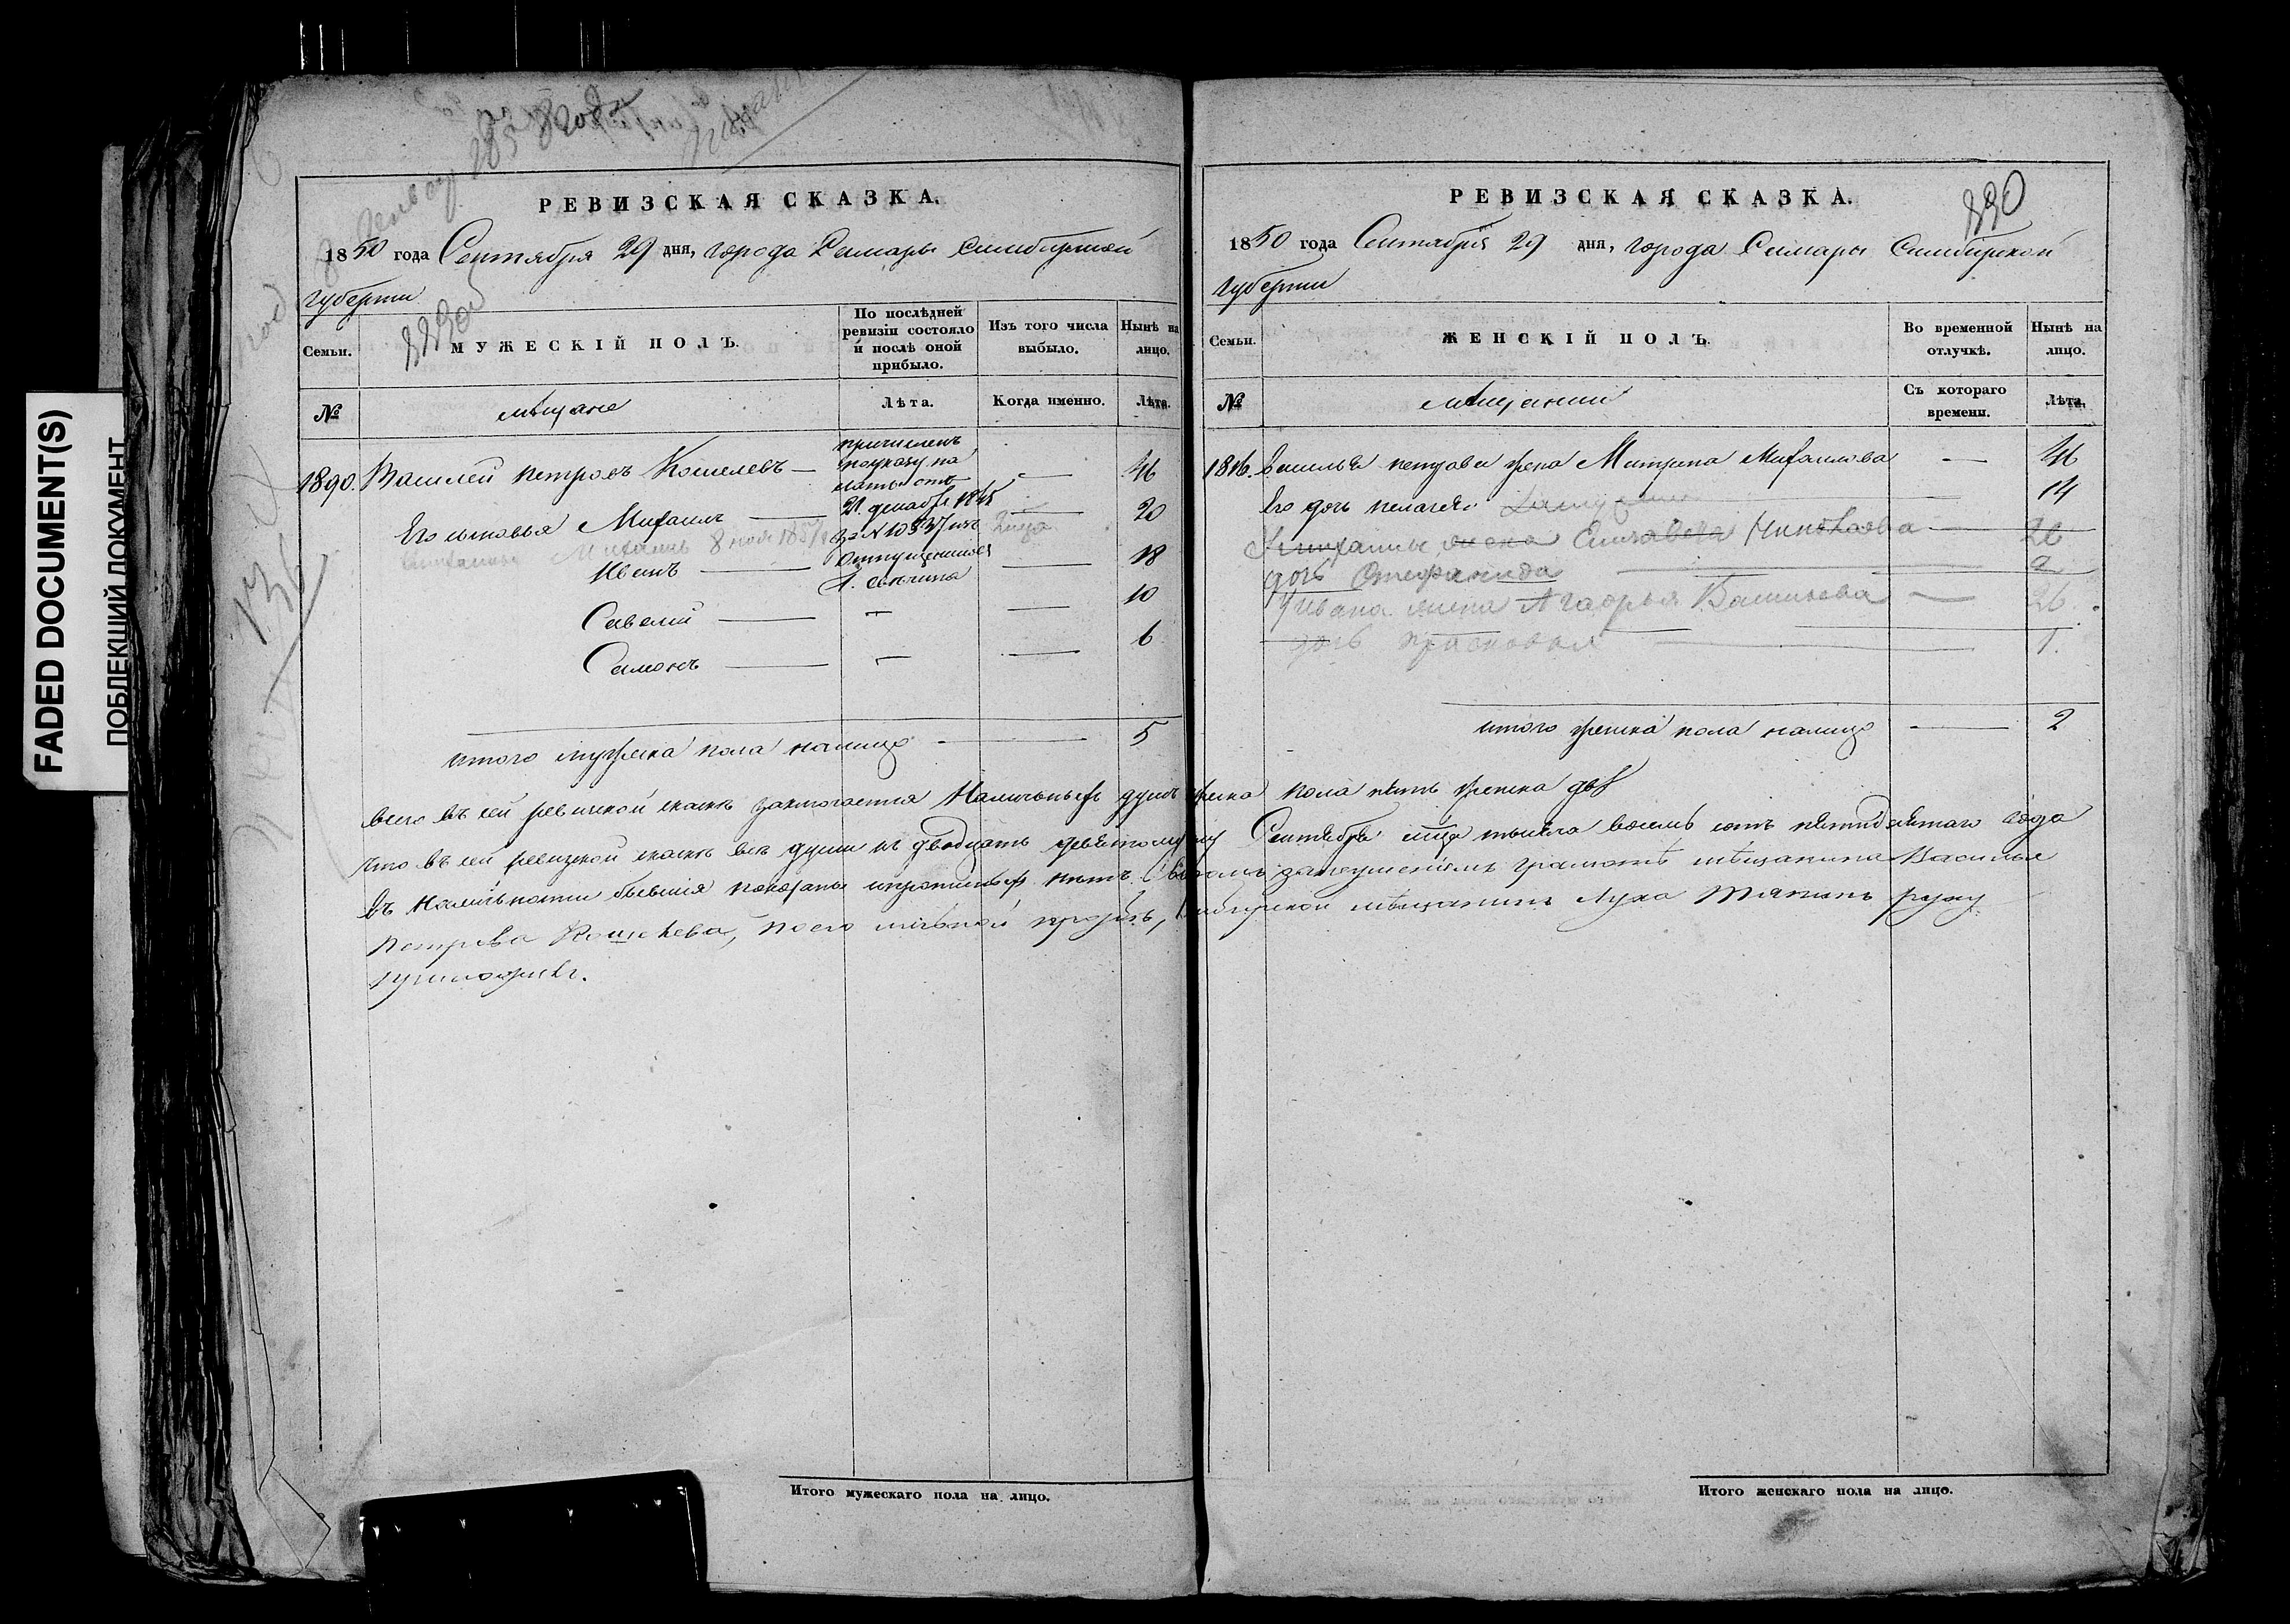 FADED DOCUMENT(S)
ПОБЛЕКШИЙ ДОКУМЕНТ
РЕВИЗСКАЯ СКАЗКА.
1850 года Сентября 29 дня, города Самары Симбирской
губернии
889
Семьи.
МУЖЕСКІЙ ПОЛЪ.
По послѣдней
ревизіи состояло
и послѣ оной
прибыло.
Изъ того числа
выбыло.
Нынѣ на
лицо.
№
мѣщане
Лѣта.
Когда именно.
Лѣта.
1890. Василей Петровъ Кошелевъ — — 46
причисленъ
по указу па
латы отъ
21. декабря 1845
за № 10537 изъ
отпущенныхъ
Его сыновья Михаилъ — — 20
Михаилъ 8 1857
Иванъ — — 18
Савелій — — — 10
Самонъ — — — 6
итого мужеска пола налицо — 5
РЕВИЗСКАЯ СКАЗКА.
890
1850 года Сентября 29 дня, города Самары Симбирской
губернии
Семьи.
ЖЕНСКІЙ ПОЛЪ.
Во временной
отлучкѣ.
Нынѣ на
лицо.
№
мѣщанки
Съ котораго
времени.
Лѣта.
1816. Василья Петрова жена Матрена Михаилова — 46
Его дочь Пелагея — 14
жена Елизавета Николаева — 26
дочь Степанида — 2
У Ивана жена Агафья Васильева — 26.
дочь Прасковья — 1.
итого женска пола налицо — 2
всего въ сей ревизской сказке заключается Наличныхъ душъ мужска пола пять женска двѣ
что въ сей ревизской сказке все души къ двадцать девятому Сентября мца тысяча восемь сотъ пятидесятаго года
въ наличности бывшія показаны и прописныхъ нетъ. въ томъ за неумѣніемъ грамотѣ мѣщанина Василья
Петрова Кошелева, по его личной прозбѣ, мѣщанинъ Лука руку
приложилъ.
Итого мужескаго пола на лицо.
Итого женскаго пола на лицо.